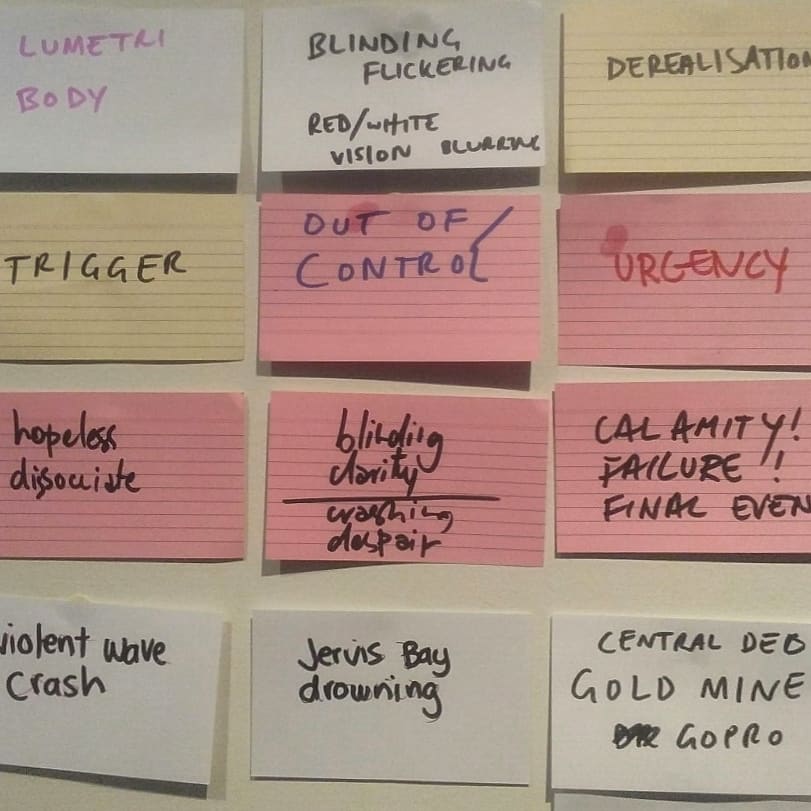 LUMETRI
BODY
BLINDING
FLICKERING
RED/WHITE
VISION BLURRING
DEREALISATION
TRIGGER
OUT OF
CONTROL
URGENCY
hopeless
dissociate
blinding
clarity
crashing
despair
CALAMITY!
FAILURE!
FINAL EVEN
violent wave
crash
Jervis Bay
drowning
CENTRAL DEB
GOLD MINE
GOPRO